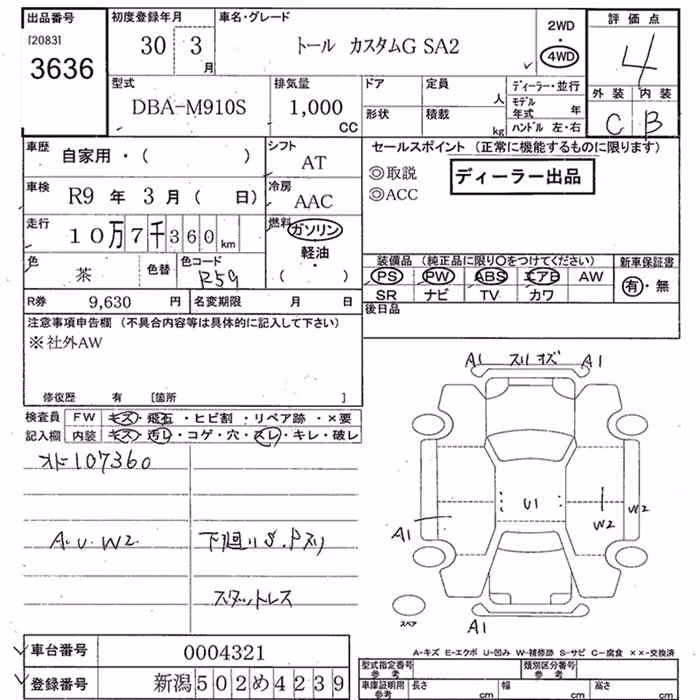 出品番号
[2083]
3636
初度登録年月
30 3月
車名・グレード
トール カスタムG SA2
2WD
・
4WD
評価点
4
外装 内装
C B
型式
DBA-M910S
排気量
1,000
CC
ドア
定員
人
形状
積載
kg
ディーラー・並行
モデル年式 年
ハンドル 左・右
車歴
自家用・( )
シフト
AT
車検
R9 年 3 月( 日)
冷房
AAC
走行
10万7千360km
燃料
ガソリン
軽油・
( )
色
茶
色替
色コード
R59
R券 9,630 円
名変期限 月 日
セールスポイント (正常に機能するものに限ります)
◎取説
◎ACC
ディーラー出品
装備品 (純正品に限り〇をつけてください)
PS PW ABS エアB AW
SR ナビ TV カワ
新車保証書
有・無
後日品
注意事項申告欄 (不具合内容等は具体的に記入して下さい)
※社外AW
修復歴 有 [箇所 ]
検査員記入欄
FW キズ・飛石・ヒビ割・リペア跡・×要
内装 キズ・汚レ・コゲ・穴・スレ・キレ・破レ
オド107360
A.U.W2
下廻りS.Pスリ
スタットレス
A1 スリキズ A1
U1
W2
W2
A1
A1
スペア
A-キズ E-エクボ U-凹み W-補修跡 S-サビ C-腐食 ××-交換済
車台番号 0004321
登録番号 新潟502め4239
型式指定番号
参考
類別区分番号
参考
車庫証明用
参考
長さ cm
幅 cm
高さ cm